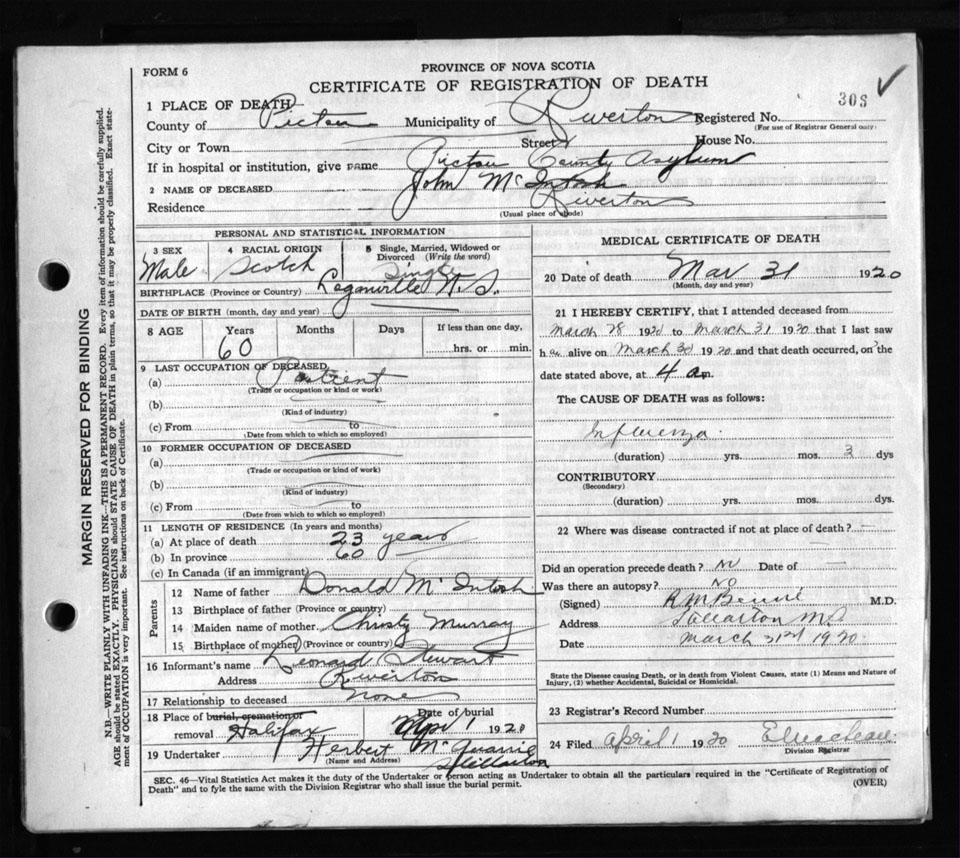 FORM 6
PROVINCE OF NOVA SCOTIA
CERTIFICATE OF REGISTRATION OF DEATH
308 ✓
1 PLACE OF DEATH
County of Pictou Municipality of Riverton Registered No.
(For use of Registrar General only)
City or Town Street House No.
If in hospital or institution, give name Pictou County Asylum
2 NAME OF DECEASED John McIntosh
Residence Riverton
(Usual place of abode)
PERSONAL AND STATISTICAL INFORMATION
3 SEX Male
4 RACIAL ORIGIN Scotch
5 Single, Married, Widowed or Divorced (Write the word) Single
BIRTHPLACE (Province or Country) Loganville N.S.
DATE OF BIRTH (month, day and year)
8 AGE Years Months Days If less than one day,
60 hrs. or min.
9 LAST OCCUPATION OF DECEASED
(a) Patient
(Trade or occupation or kind or work)
(b)
(Kind of industry)
(c) From to
(Date from which to which so employed)
10 FORMER OCCUPATION OF DECEASED
(a)
(Trade or occupation or kind of work)
(b)
(Kind of industry)
(c) From to
(Date from which to which so employed)
11 LENGTH OF RESIDENCE (In years and months)
(a) At place of death 23 years
(b) In province 60
(c) In Canada (if an immigrant)
Parents
12 Name of father Donald McIntosh
13 Birthplace of father (Province or country)
14 Maiden name of mother Christy Murray
15 Birthplace of mother (Province or country)
16 Informant's name Leonard Stewart
Address Riverton
17 Relationship to deceased None
18 Place of burial, cremation or removal Halifax Date of burial Apr 1 1920
19 Undertaker Herbert McQuarrie
(Name and Address) Stellarton
MEDICAL CERTIFICATE OF DEATH
20 Date of death Mar 31 1920
(Month, day and year)
21 I HEREBY CERTIFY, that I attended deceased from
March 28 1920 to March 31 1920 that I last saw
h alive on March 30 1920 and that death occurred, on the
date stated above, at 4 a m.
The CAUSE OF DEATH was as follows:
Influenza
(duration) yrs. mos. 3 dys
CONTRIBUTORY
(Secondary)
(duration) yrs. mos. dys.
22 Where was disease contracted if not at place of death?
Did an operation precede death? No Date of
Was there an autopsy? No
(Signed) M.D.
Address
Date March 31st 1920
State the Disease causing Death, or in death from Violent Causes, state (1) Means and Nature of
Injury, (2) whether Accidental, Suicidal or Homicidal.
23 Registrar's Record Number
24 Filed April 1 1920
Division Registrar
SEC. 46—Vital Statistics Act makes it the duty of the Undertaker or person acting as Undertaker to obtain all the particulars required in the "Certificate of Registration of
Death" and to fyle the same with the Division Registrar who shall issue the burial permit. (OVER)
MARGIN RESERVED FOR BINDING
N.B.—WRITE PLAINLY WITH UNFADING INK—THIS IS A PERMANENT RECORD. Every item of information should be carefully supplied.
AGE should be stated EXACTLY. PHYSICIANS should STATE CAUSE OF DEATH in plain terms, so that it may be properly classified. Exact statement
of OCCUPATION is very important. See instructions on back of Certificate.